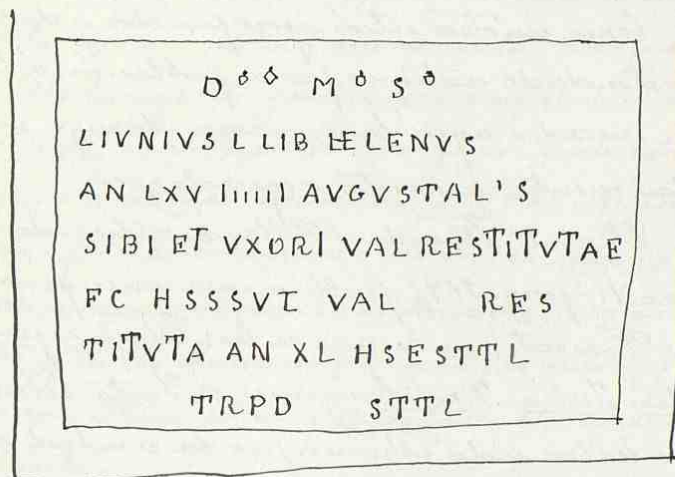 D M S
LIVNIVS L LIB HELENVS
AN LXV IIIIII AVGVSTAL'S
SIBI ET VXORI VAL RESTITVTAE
FC HSSSVT VAL RES
TITVTA AN XL HSESTTL
TRPD STTL